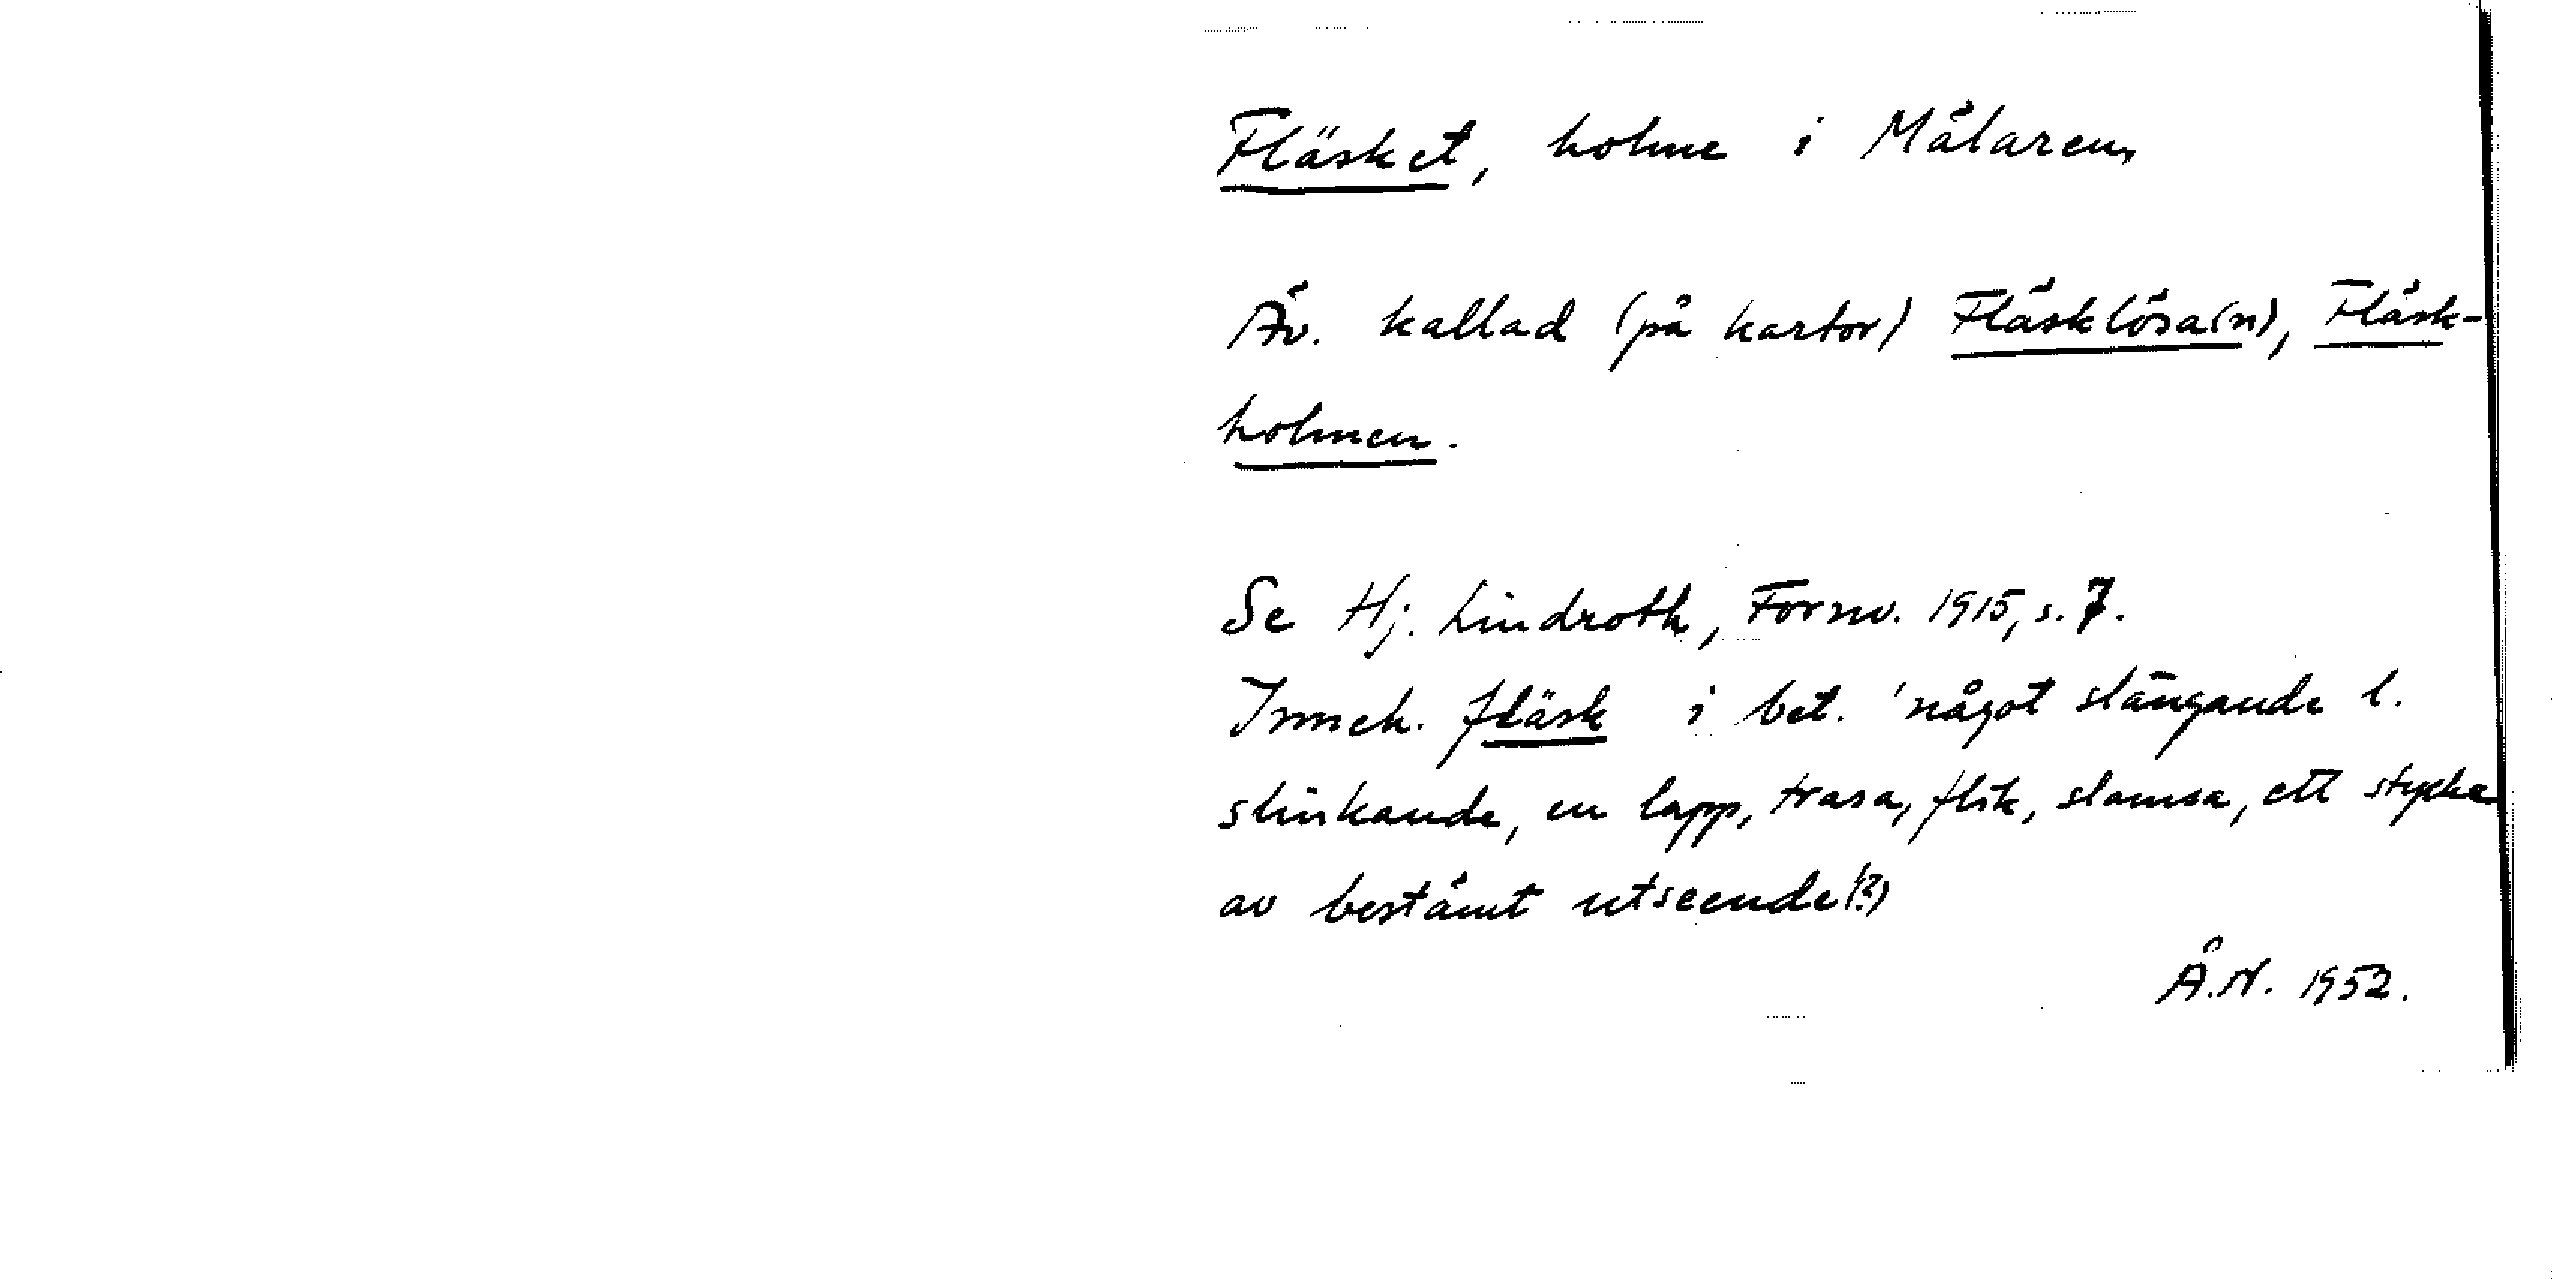 Fläsket, holme i Mälaren,
Äv. kallad (på kartor) Fläsklösa(n), Fläsk-
holmen.
Se Hj. Lindroth, Fornv. 1915, s. 7.
Inneh. fläsk i bet. 'något slängande l.
slinkande, en lapp, trasa, flik, slamsa, ett stycke
av bestämt utseende(?)
Å.N. 1952.